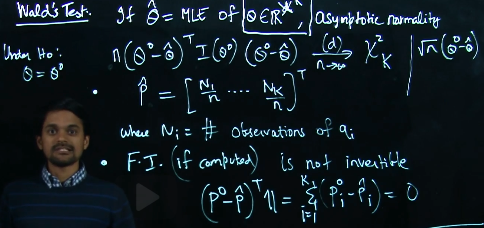 Wald's Test: If θ̂ = MLE of θ ∈ ℝᴷ, asymptotic normality
Under H₀: θ̂ = θ⁰
n(θ⁰-θ̂)ᵀ I(θ⁰) (θ⁰-θ̂) (d)→ n→∞ χ²_K | √n(θ⁰-θ̂)
• p̂ = [N₁/n .... N_K/n]ᵀ
where Nᵢ = # Observations of aᵢ
• F.I. (if computed) is not invertible
(p⁰-p̂)ᵀ 1 = Σᵢ₌₁ᴷ (pᵢ⁰-p̂ᵢ) = 0